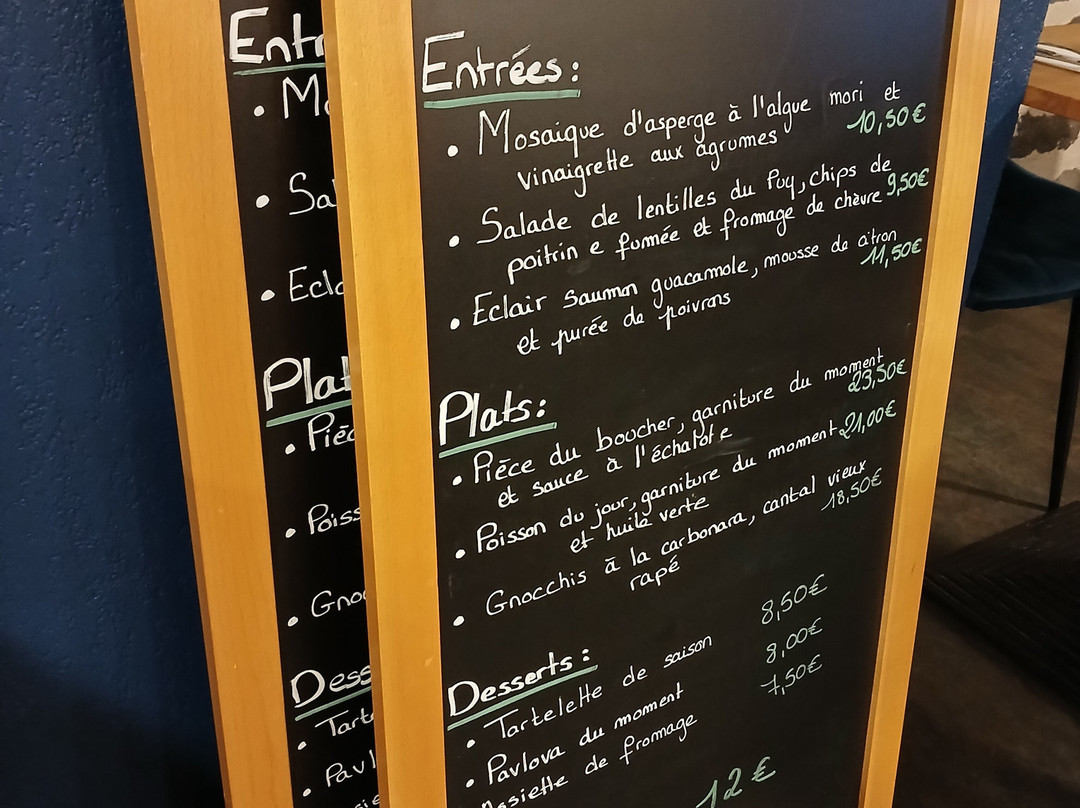 Entr
• Mo
• Sa
• Ecla
Plat
• Pièc
• Poiss
• Gno
Dess
• Tart
• Pavl
Entrées :
• Mosaique d'asperge à l'algue mori et
vinaigrette aux agrumes 10,50€
• Salade de lentilles du Puy, chips de
poitrin e fumée et fromage de chèvre 9,50€
• Eclair saumon guacamole, mousse de citron
et purée de poivrons 11,50€
Plats :
• Pièce du boucher, garniture du moment
et sauce à l'échalote 23,50€
• Poisson du jour, garniture du moment 21,00€
et huile verte
• Gnocchis à la carbonara, cantal vieux
rapé 18,50€
Desserts :
• Tartelette de saison 8,50€
• Pavlova du moment 8,00€
Assiette de fromage 7,50€
12€